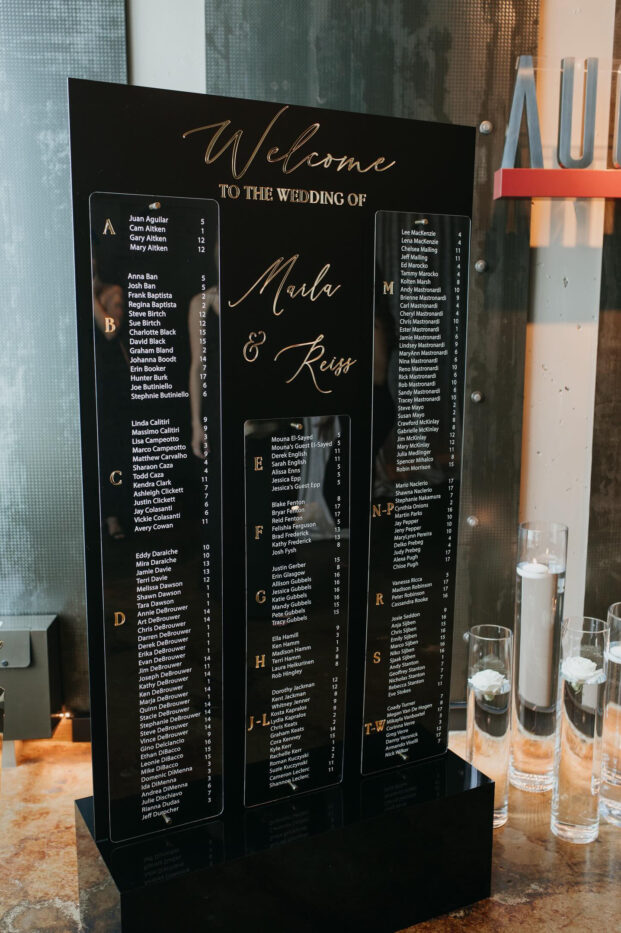 Welcome
TO THE WEDDING OF
Marla
&
Reiss
A
Juan Aguilar 5
Cam Aitken 1
Gary Aitken 12
Mary Aitken 12
B
Anna Ban 5
Josh Ban 5
Frank Baptista 2
Regina Baptista 2
Steve Birtch 12
Sue Birtch 12
Charlotte Black 15
David Black 15
Graham Bland 2
Johanna Boodt 14
Erin Booker 7
Hunter Burk 17
Joe Butiniello 6
Stephnie Butiniello 6
C
Linda Calitiri 9
Massimo Calitiri 9
Lisa Campeotto 3
Marco Campeotto 3
Matthew Carvalho 9
Sharaon Caza 4
Todd Caza 4
Kendra Clark 11
Ashleigh Clickett 7
Justin Clickett 7
Jay Colasanti 6
Vickie Colasanti 6
Avery Cowan 11
D
Eddy Daraiche 10
Mira Daraiche 13
Jamie Davie 13
Terri Davie 12
Melissa Dawson 1
Shawn Dawson 1
Tara Dawson 1
Annie DeBrouwer 14
Art DeBrouwer 1
Chris DeBrouwer 1
Darren DeBrouwer
Derek DeBrouwer
Erika DeBrouwer
Evan DeBrouwer
Jim DeBrouwer
Joseph DeBrouwer
Kathy DeBrouwer
Ken DeBrouwer
Marja DeBrouwer
Quinn DeBrouwer
Stacie DeBrouwer
Stephanie DeBrouwer
Steve DeBrouwer
Vince DeBrouwer
Gino Delciancio 16
Ethan DiBacco 15
Leonie DiBacco 15
Mike DiBacco 3
Domenic DiMenna 3
Ida DiMenna 3
Andrea DiMenna 6
Julie Dischiavo 7
Rianna Dudas 3
Jeff Durocher
E
Mouna El-Sayed 5
Mouna's Guest El-Sayed 5
Derek English 11
Sarah English 11
Alissa Enns 5
Jessica Epp 5
Jessica's Guest Epp 5
F
Blake Fenton 8
Bryar Fenton 17
Reid Fenton 17
Felishia Ferguson 5
Brad Frederick 13
Kathy Frederick 13
Josh Fysh 8
G
Justin Gerber 15
Erin Glasgow 8
Allison Gubbels 16
Jessica Gubbels 16
Katie Gubbels 16
Mandy Gubbels 15
Pete Gubbels 15
Tracy Gubbels
H
Ella Hamill 9
Ken Hamm 3
Madison Hamm 1
Terri Hamm 3
Laura Heikurinen 8
Rob Hingley 8
J-L
Dorothy Jackman 12
Kent Jackman
Whitney Jenner
Kosta Kapralos
Lydia Kapralos
Chris Keats
Graham Keats
Cora Kenney
Kyle Kerr
Rachelle Kerr
Roman Kuczski
Suzie Kuczynski
Cameron Leclerc 11
Shannon Leclerc 11
M
Lee MacKenzie 4
Lena MacKenzie 4
Chelsea Malling
Jeff Malling
Ed Marocko 4
Tammy Marocko 4
Kolten Marsh 8
Andy Mastronardi 10
Brienne Mastronardi 9
Carl Mastronardi
Cheryl Mastronardi
Chris Mastronardi 10
Ester Mastronardi 1
Jamie Mastronardi 6
Lindsey Mastronardi 9
MaryAnn Mastronardi
Nina Mastronardi
Reno Mastronardi 10
Rick Mastronardi
Rob Mastronardi
Sandy Mastronardi
Tracey Mastronardi 10
Steve Mayo 2
Susan Mayo 2
Crawford McKinlay
Gabrielle McKinlay
Jim McKinlay 12
Mary McKinlay 12
Julia Medlinger
Spencer Mihalco 8
Robin Morrison 15
N-P
Mario Naclerio 17
Shawna Naclerio 17
Stephanie Nakamura 7
Cynthia Onions 2
Martin Parks 16
Jay Pepper 10
Jeny Pepper 10
MaryLynn Pereira
Delko Prebeg 4
Judy Prebeg 4
Alexa Pugh 17
Chloe Pugh 17
R
Vanessa Ricca 3
Madison Robinson 17
Peter Robinson 17
Cassandra Rooke 16
S
Josie Seddon
Anja Sijben
Chris Sijben
Emily Sijben
Marco Sijben
Niko Sijben
Sjaak Sijben
Andy Stanton
Geoffrey Stanton
Nicholas Stanton
Rebecca Stanton
Eve Stokes 11
T-W
Coady Turner 7
Megan Van De Hogen
Mikayla Vanboxtel 3
Corinne Verre
Greg Verre
Danny Veronick
Armando Vivelli
AU